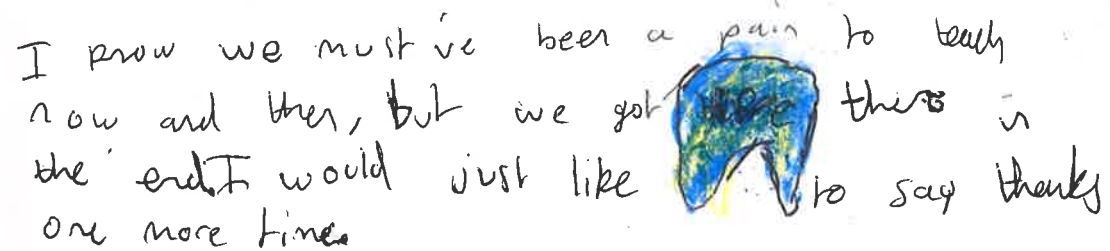 I know we must've been a pain to teach
now and then, but we got there in
the end. I would just like to say thanks
one more time.